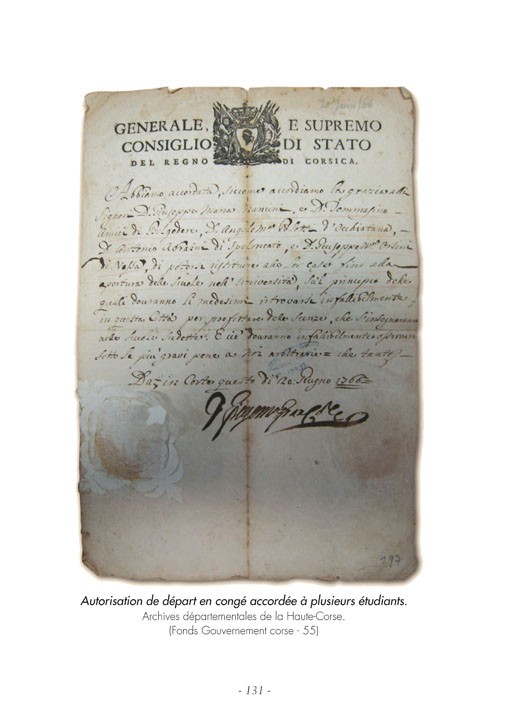 20 Juin /66
GENERALE, E SUPREMO
CONSIGLIO DI STATO
DEL REGNO DI CORSICA.
Abbiamo accordata, siccome accordiamo la grazia alli
Signori D. Giuseppe Maria Mancini, e D. Tommasino
di Belgodere, D. Angelo d'Occhiatana,
D. Antonio Abraini di Speloncato, e D. Giuseppe Mª Orsini
di Nessa, di potersi restituire alle case fino alla
apertura delle Scuole nell'Università, sul principio delle
quali dovranno li medesimi ritrovarsi infallibilmente
in questa Città per profittare delle Scienze, che s'insegneranno
nelle Scuole sudette. E ciò dovranno infallibilmente osservare
sotto le più gravi pene a Noi arbitrarie = che tanto
Dat in Corte questo dì 20 Giugno 1766 =
197
Autorisation de départ en congé accordée à plusieurs étudiants.
Archives départementales de la Haute-Corse.
(Fonds Gouvernement corse - 55)
- 131 -